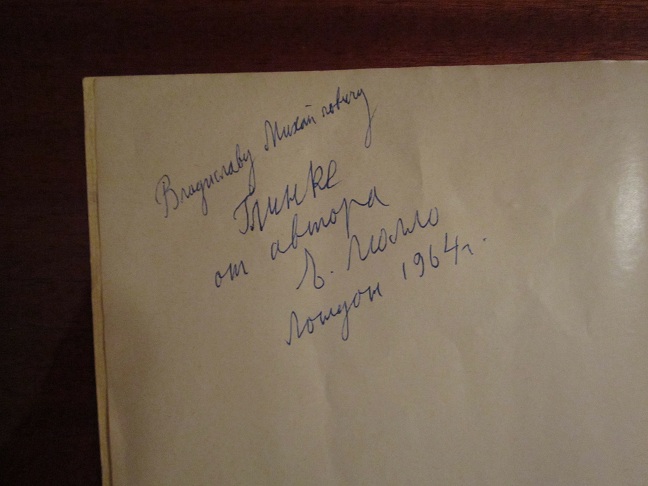 Владиславу Михайловичу
Глинке
от автора
Е. Молло
Лондон 1964 г.